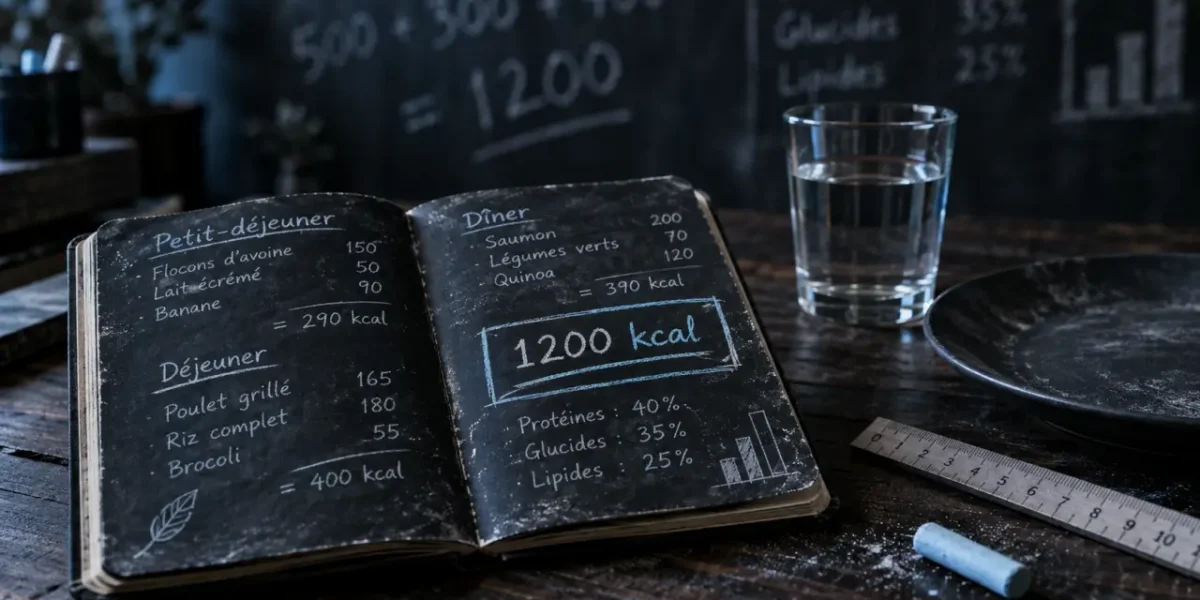 500 + 300 + 400
= 1200
Glucides 35%
Lipides 25%
Petit-déjeuner
· Flocons d'avoine 150
· Lait écrémé 50
· Banane 90
= 290 kcal
Déjeuner
· Poulet grillé 165
· Riz complet 180
· Brocoli 55
= 400 kcal
Dîner
· Saumon 200
· Légumes verts 70
· Quinoa 120
= 390 kcal
1200 kcal
· Protéines : 40%
· Glucides : 35%
· Lipides : 25%
0 1 2 3 4 5 6 7 8 9 10